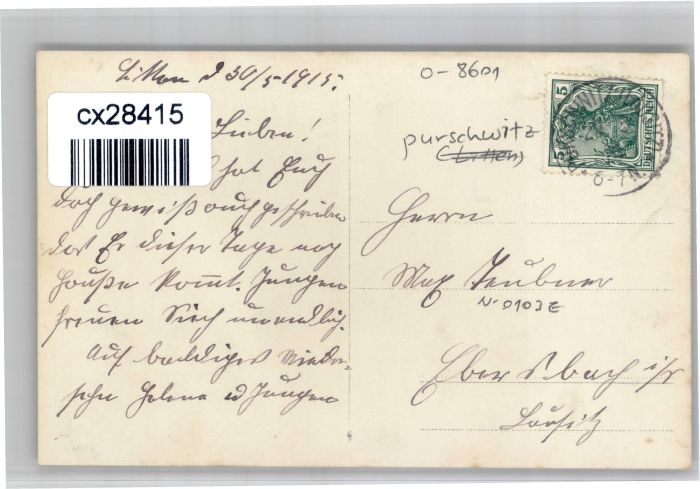 Litten d 30/5-1915.
cx28415
Lieben!
hat Euch
doch gewiß auch geschrieben
das Er dieser Tage nach
Hauße kommt. Jungen
freuen Sich unendlich.
Auf baldiges Wieder-
sehn Helene u Jungen
0-8601
purschwitz
(Litten)
5
DEUTSCHES REICH
6-7N.
Herrn
Max Teubner
N-0103Z
Ebersbach i/s
Lausitz